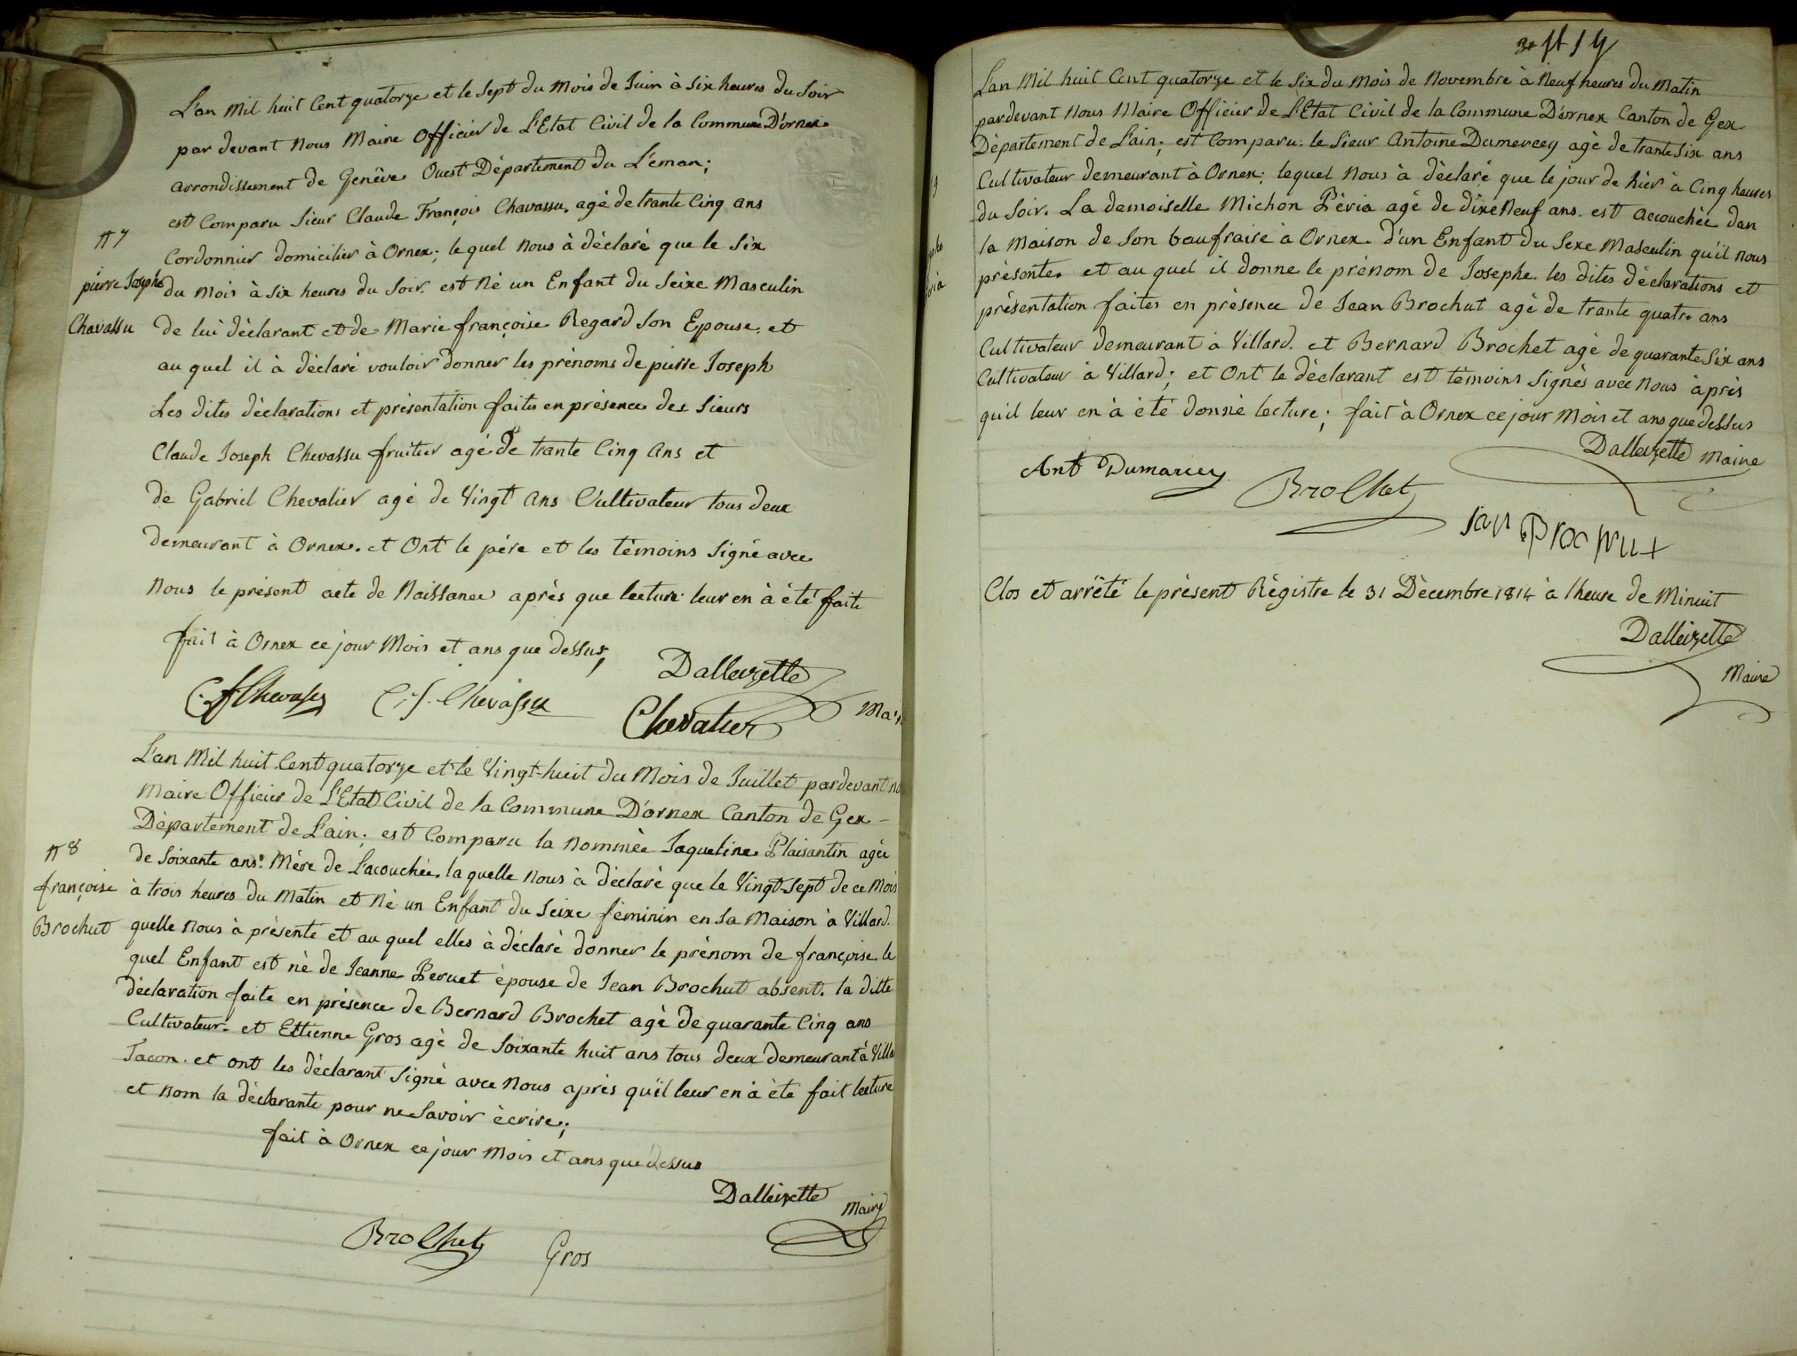 L'an mil huit Cent quatorze et le sept du Mois de Juin à six heures du Soir
par devant Nous Maire Officier de L'Etat Civil de la Commune D'ornex
arrondissement de Genêve Ouest Département du L'eman;
est Comparu Sieur Claude François Chavassu, agé de trante Cinq ans
Cordonnier domicilier à Ornex; lequel nous à déclaré que le Six
du Mois à Six heures du Soir est Né un Enfant du Seixe Masculin
de lui déclarant et de Marie françoise Regard Son Epouse, et
au quel il à déclaré vouloir donner les prénoms de pierre Joseph
Les dites déclarations et présentation faites en présence des Sieurs
Claude Joseph Chevassu fruitier agé de trante Cinq Ans et
de Gabriel Chevalier agé de Vingt Ans Cultivateur tous deux
demeurant à Ornex. et Ont le pére et les témoins Signé avec
Nous le présent acte de Naissance après que lecture leur en à été faite
fait à Ornex ce jour Mois et ans que dessus,
№ 7
pierre Joseph
Chavassu
Dalleizette
C.f Chevassu C.J. Chevassu
Chevalier
L'an Mil huit Cent quatorze et le Vingt-huit du Mois de Juillet pardevant no
Maire Officier de L'Etat Civil de la Commune D'ornex Canton de Gex -
Département de L'ain; est Comparu la Nommée Jaqueline Plaisantin agée
de Soixante ans. Mére de L'acouchée. la quelle nous à déclaré que le Vingt-Sept de ce Mois
à trois heures du Matin et Né un Enfant du Seixe féminin en Sa Maison à Villard.
quelle Nous à présente et au quel elles à déclaré donner le prénom de françoise le
quel Enfant est né de Jeanne Peruet épouse de Jean Brochut absent. la ditte
déclaration faite en présence de Bernard Brochet agé de quarante Cinq ans
Cultivateur. et Ettienne Gros agé de Soixante huit ans tous deux demeurant à Villa
Tacon. et ont les déclarant Signé avec Nous après qu'il leur en à été fait lecture
et nom la déclarante pour ne Savoir écrire;
fait à Ornex ce jour Mois et ans que dessus
№ 8
françoise
Brochut
Dalleizette Maire
Brochet Gros
L'an Mil huit Cent quatorze et le Six du Mois de Novembre à Neuf heures du Matin
pardevant Nous Maire Officier de L'Etat Civil de la Commune D'ornex Canton de Gex
Département de L'ain; est Comparu. le Sieur Antoine Dumercey agé de trante Six ans
Cultivateur demeurant à Ornex; lequel Nous à déclaré que le jour de hièr à Cinq heures
du Soir. La demoiselle Michon Péria agé de dixe Neuf ans. est accouchée dan
la Maison de Son baufraire à Ornex. d'un Enfant du Sexe Masculin qu'il nous
présente. et au quel il donne le prénom de Josephe. les dites déclarations et
présentation faites en présence de Jean Brochut agé de trante quatre ans
Cultivateur demeurant à Villard. et Bernard Brochet agé de quarante Six ans
Cultivateur à Villard; et Ont le déclarant est témoins Signés avec Nous àprès
qu'il leur en à été donné lecture; fait à Ornex ce jour Mois et ans que dessus
Dalleizette Maire
Ant Dumarcey
Brochet
Jan Brochut
Clos et arrêté le présent Régistre le 31 Décembre 1814 à l'heure de Minuit
Dalleizette
Maire